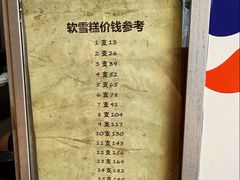 软雪糕价钱参考
1 支 13
2 支 26
3 支 39
4 支 52
5 支 65
6 支 78
7 支 91
8 支 104
9 支 117
10 支 130
11 支 143
12 支 156
13 支 169
14 支 182
15 支 195